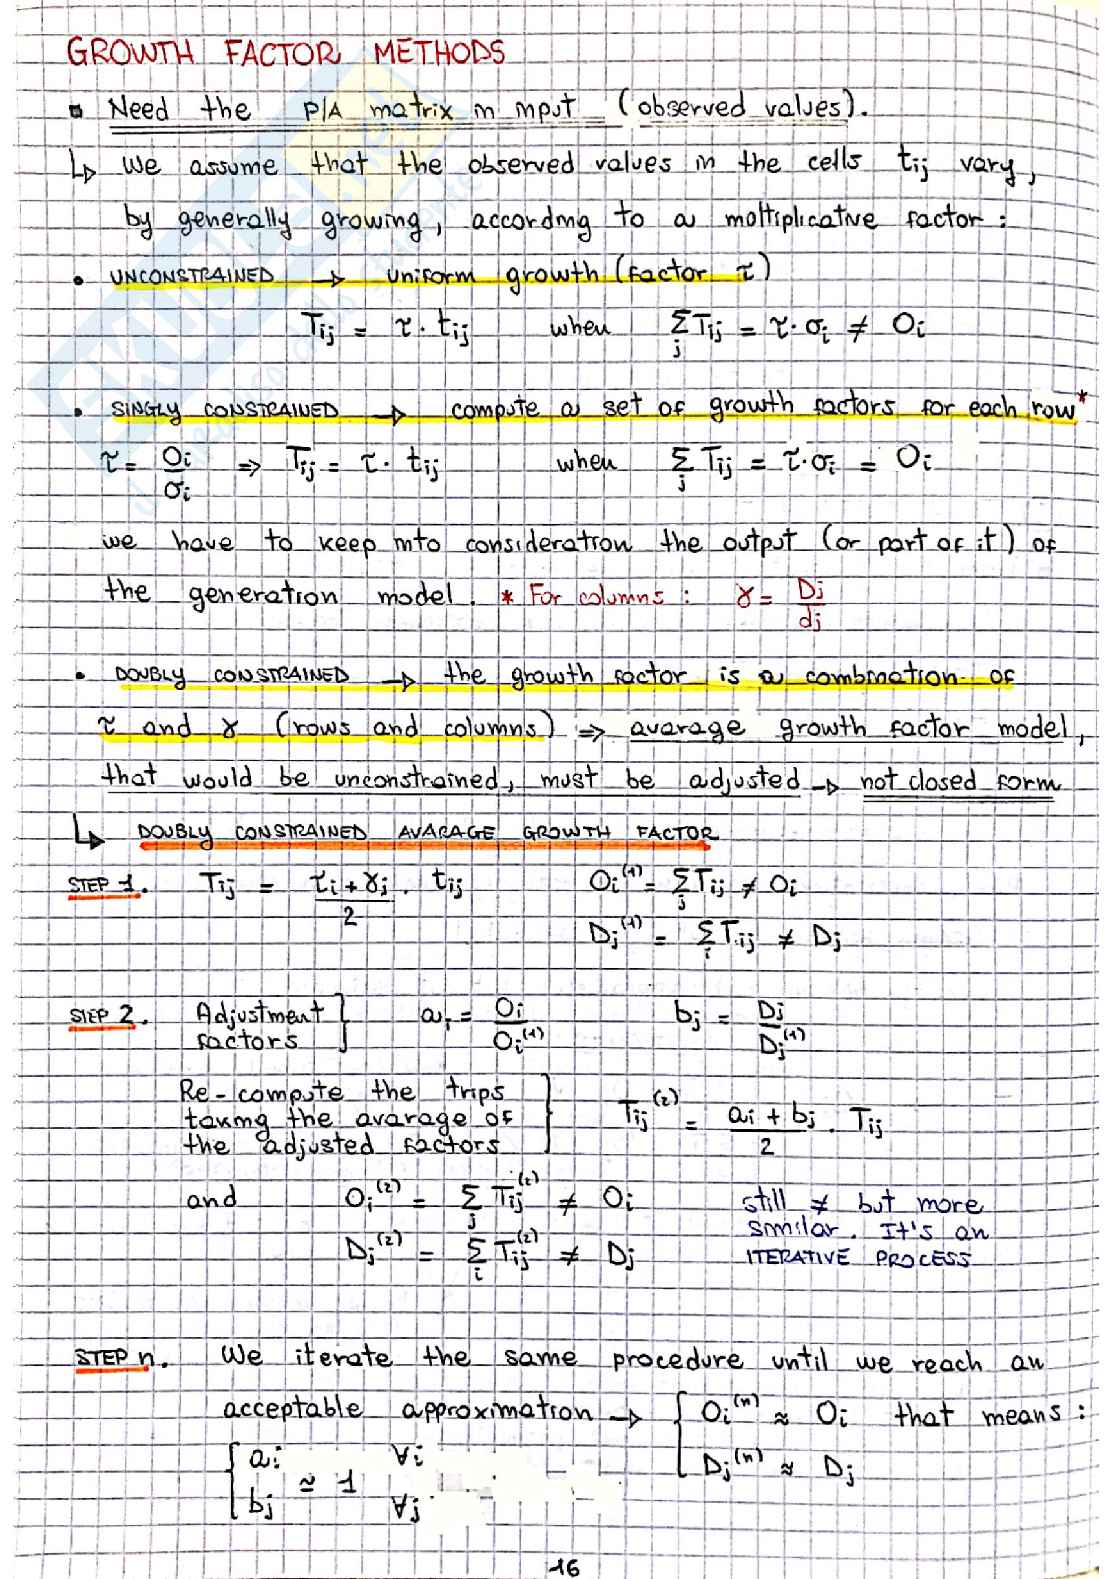 GROWTH FACTOR METHODS
▫ Need the P/A matrix in input (observed values).
↳ We assume that the observed values in the cells tij vary,
by generally growing, according to a moltiplicative factor:
• UNCONSTRAINED → uniform growth (factor τ)
Tij = τ · tij when Σj Tij = τ · σi ≠ Oi
• SINGLY CONSTRAINED → compute a set of growth factors for each row*
τ = Oi/σi ⇒ Tij = τ · tij when Σj Tij = τ · σi = Oi
we have to keep into consideration the output (or part of it) of
the generation model. * For columns: γ = Dj/dj
• DOUBLY CONSTRAINED → the growth factor is a combination of
τ and γ (rows and columns) ⇒ avarage growth factor model,
that would be unconstrained, must be adjusted → not closed form
↳ DOUBLY CONSTRAINED AVARAGE GROWTH FACTOR
STEP 1. Tij = (τi + γj)/2 · tij Oi^(1) = Σj Tij ≠ Oi
Dj^(1) = Σi Tij ≠ Dj
STEP 2. Adjustment factors } ai = Oi/Oi^(1) bj = Dj/Dj^(1)
Re-compute the trips
taking the avarage of
the adjusted factors } Tij^(2) = (ai + bj)/2 · Tij
and Oi^(2) = Σj Tij^(2) ≠ Oi
Dj^(2) = Σi Tij^(2) ≠ Dj
still ≠ but more
similar. It's an
ITERATIVE PROCESS
STEP n. We iterate the same procedure until we reach an
acceptable approximation → { Oi^(n) ≈ Oi that means:
Dj^(n) ≈ Dj
{ ai ∀i
≃ 1
bj ∀j
16